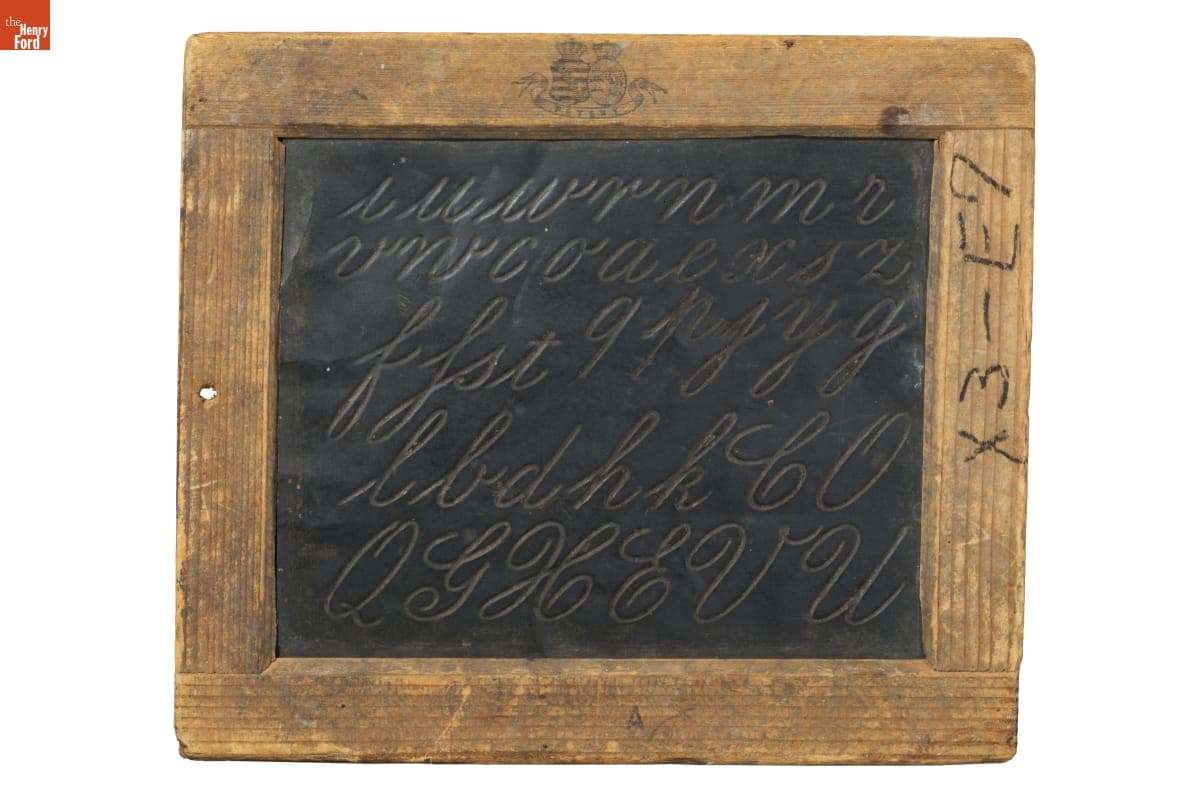 the Henry Ford
PATENT
i u w r n m r
v w c o a e x s z
f ſ s t q p j y g
l b d h k C O
Q G H E V U
A
X3-E7